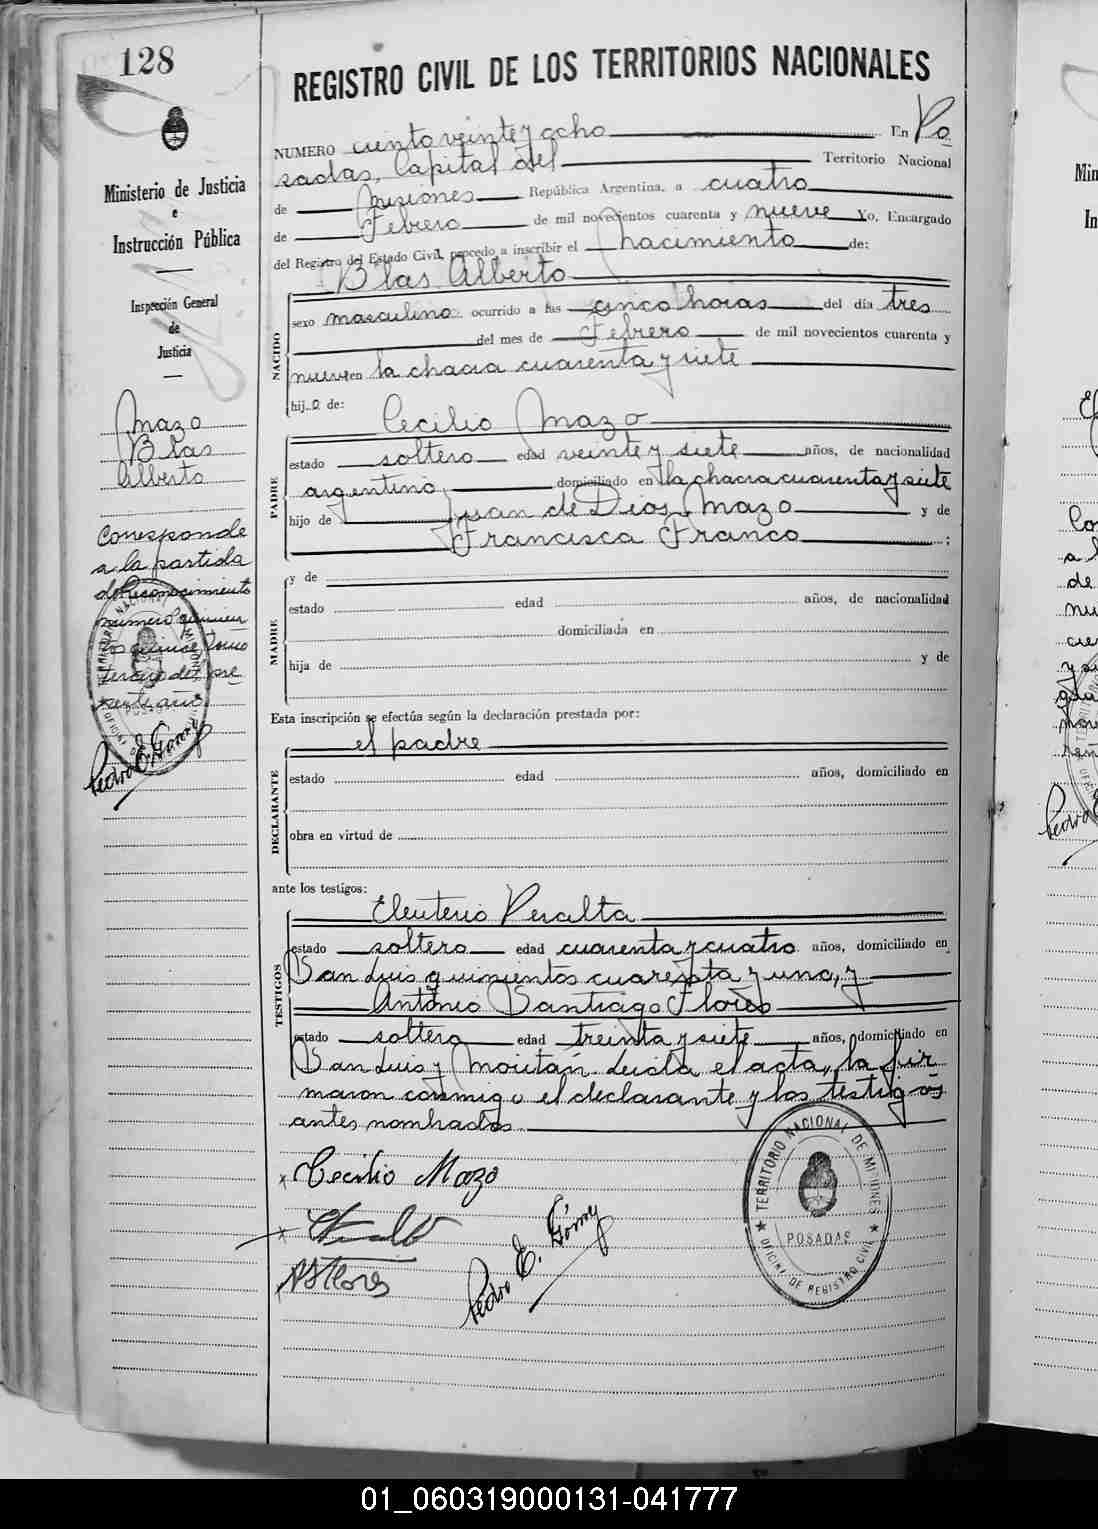 128
Ministerio de Justicia
e
Instrucción Pública
Inspección General
de
Justicia
Mazo
Blas
Alberto
Corresponde
a la partida
de Reconocimiento
número quinien
tos quince tomo
tercero del pre
sente año
Pedro E. Gómez
REGISTRO CIVIL DE LOS TERRITORIOS NACIONALES
NUMERO ciento veinte y ocho En Po
sadas, Capital del Territorio Nacional
de Misiones República Argentina, a cuatro
de Febrero de mil novecientos cuarenta y nueve Yo, Encargado
del Registro del Estado Civil, procedo a inscribir el nacimiento de:
Blas Alberto
NACIDO
sexo masculino ocurrido a las cinco horas del día tres
del mes de Febrero de mil novecientos cuarenta y
nueve en la chacra cuarenta y siete
hijo de: Cecilio Mazo
PADRE
estado soltero edad veinte y siete años, de nacionalidad
argentino domiciliado en la chacra cuarenta y siete
hijo de Juan de Dios Mazo y de
Francisca Franco ;
MADRE
y de
estado edad años, de nacionalidad
domiciliada en
hija de y de
Esta inscripción se efectúa según la declaración prestada por:
el padre
DECLARANTE
estado edad años, domiciliado en
obra en virtud de
ante los testigos:
Eleuterio Peralta
TESTIGOS
estado soltero edad cuarenta y cuatro años, domiciliado en
San Luis quinientos cuarenta y uno, y
Antonio Santiago Flores
estado soltero edad treinta y siete años, domiciliado en
San Luis y Moritán. Leída el acta, la fir
maron conmigo el declarante y los testigos
antes nombrados
Cecilio Mazo
Pedro E. Gómez
A S Flores
TERRITORIO NACIONAL DE MISIONES
POSADAS
OFICINA DE REGISTRO CIVIL
01_060319000131-041777